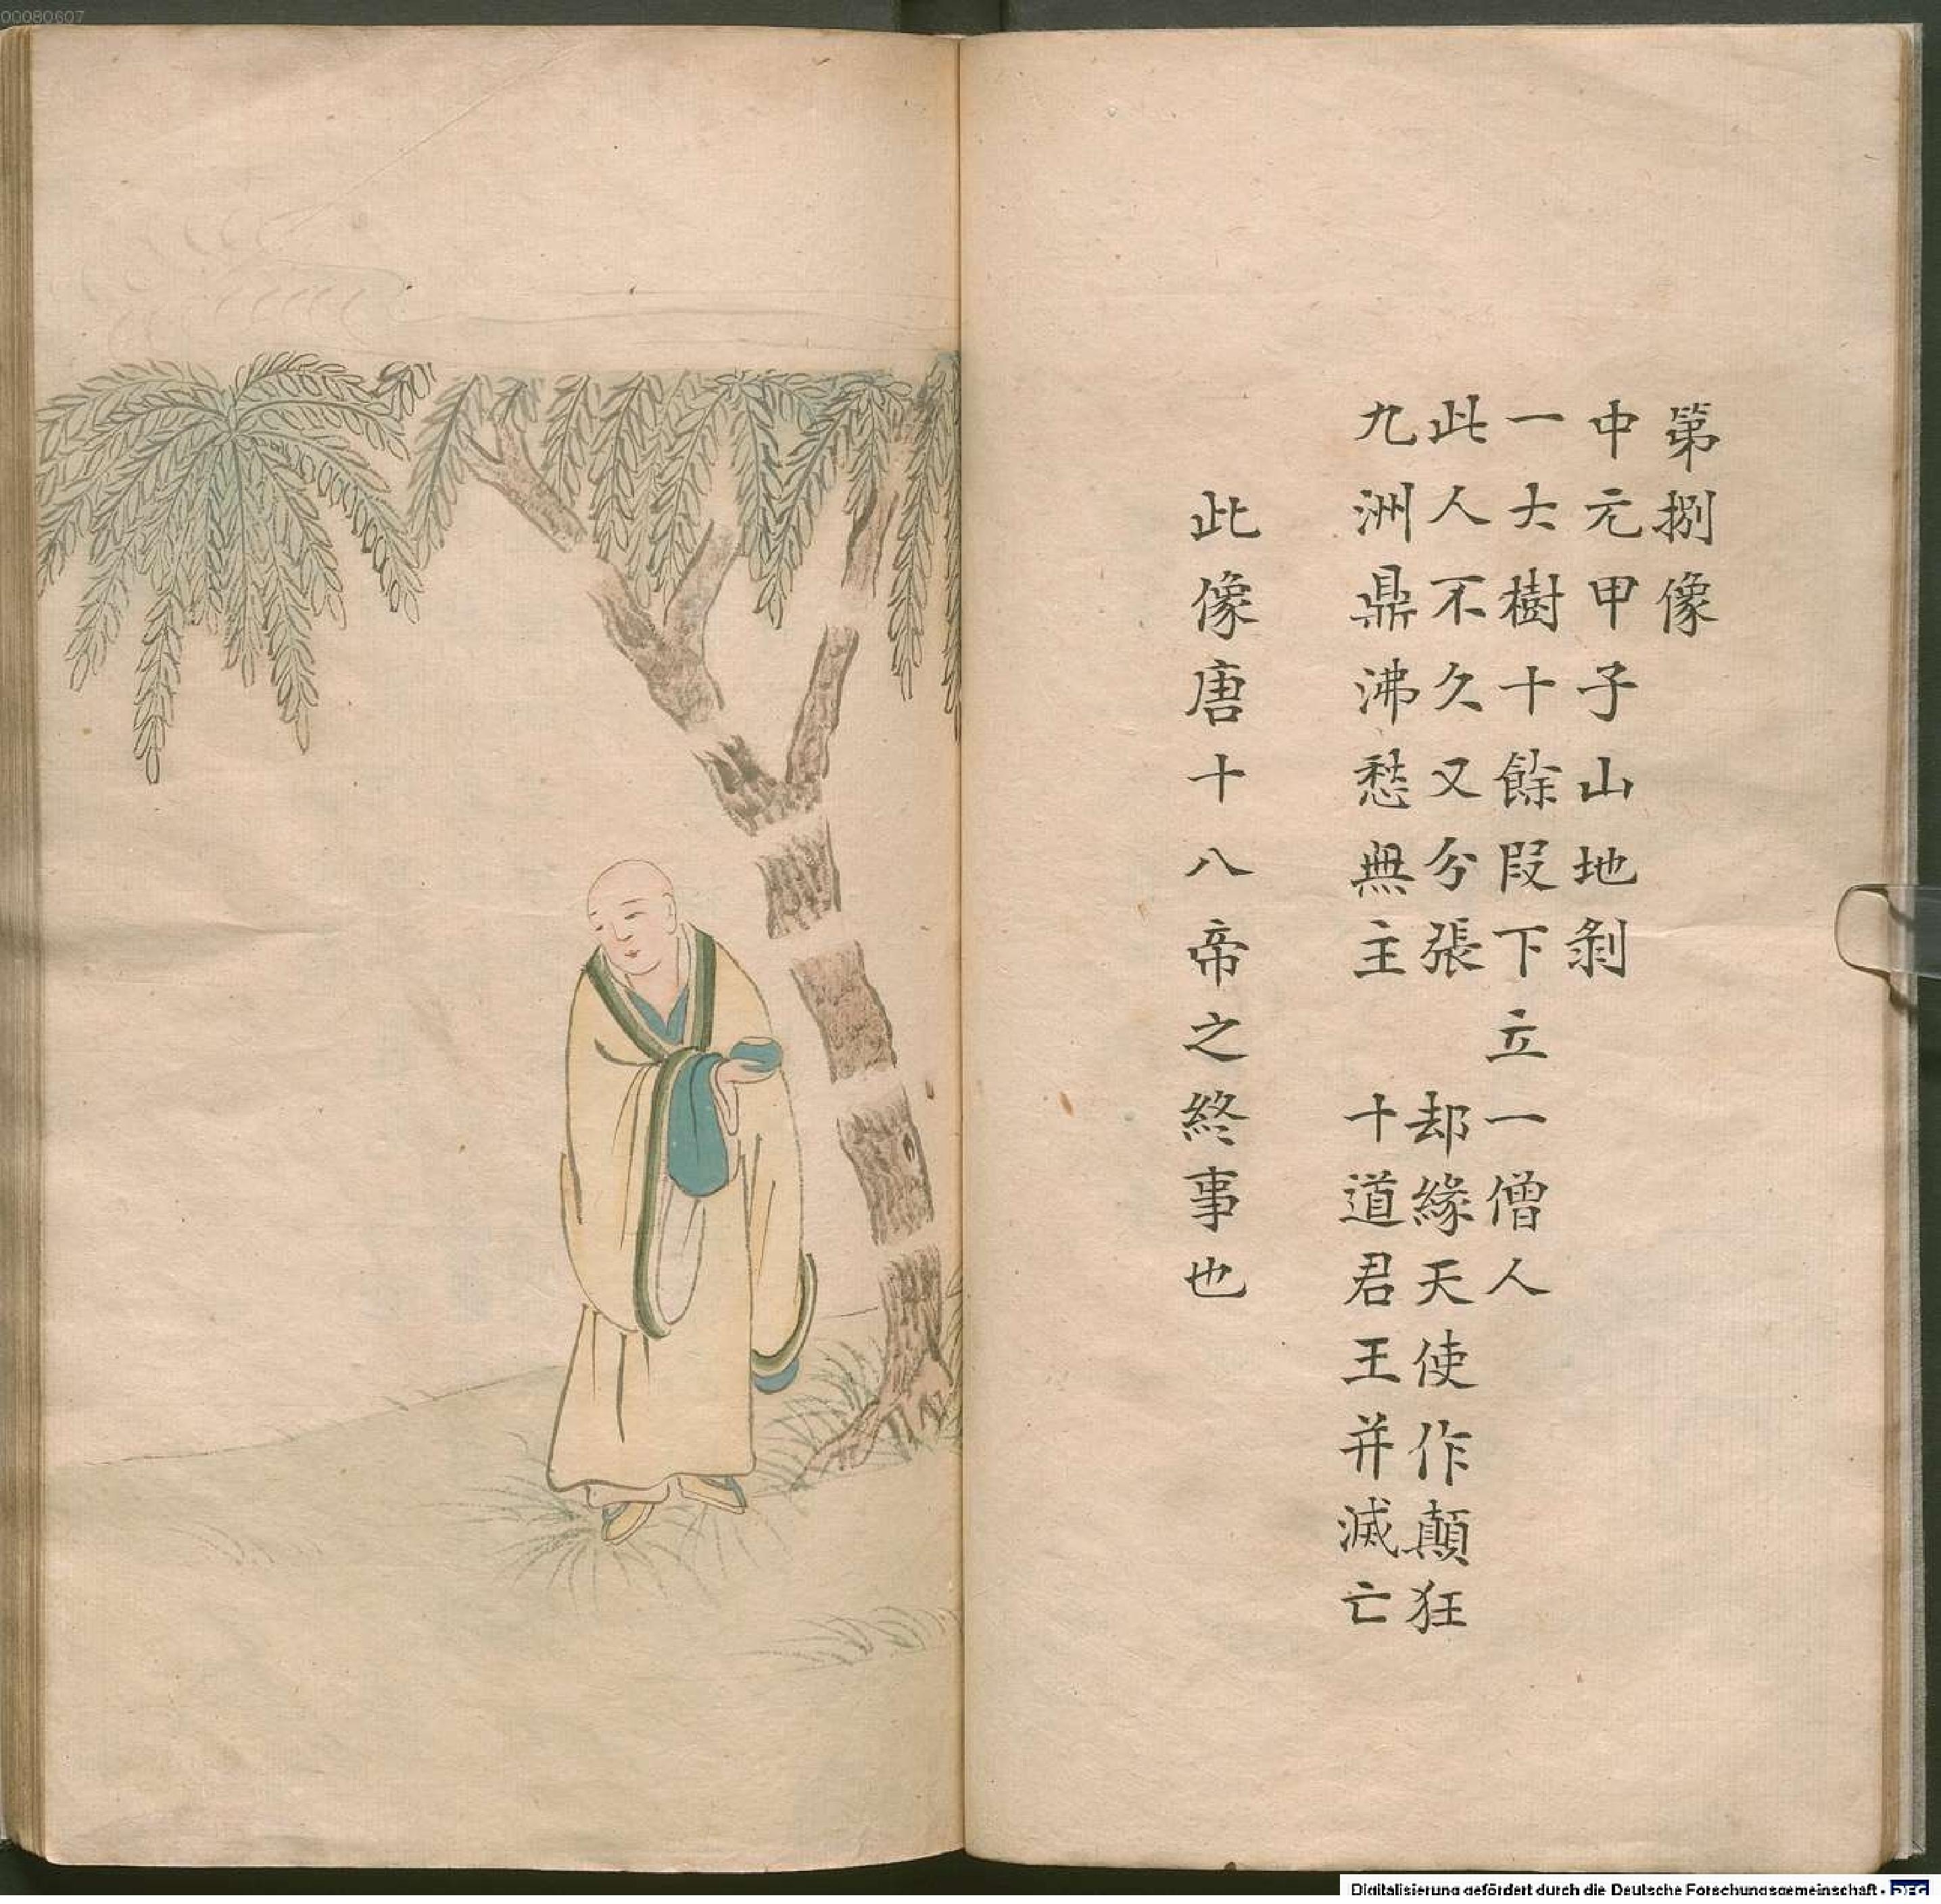 00080607
第捌像
中元甲子山地剝
一大樹十餘段下立一僧人
此人不久又分張 却緣天使作顛狂
九洲鼎沸愁無主 十道君王并滅亡
此像唐十八帝之終事也
Digitalisierung gefördert durch die Deutsche Forschungsgemeinschaft - DFG